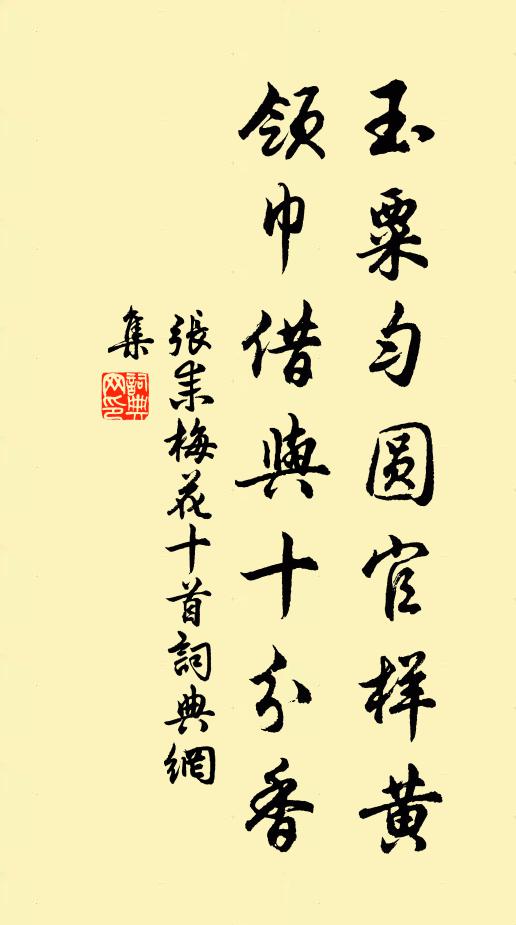 玉粟匀圆官样黄
領巾借與十分香
張耒梅花十首詞典網
集
詞典
网印